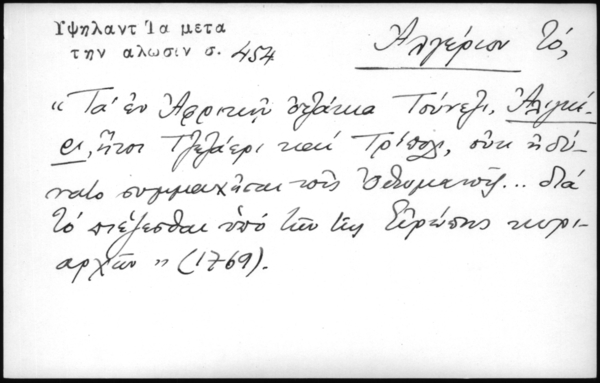 Υψηλαντ Ἱα μετα
την αλωσιν σ. 454
Ἀλγέριον τό,
“Τά ἐν Ἀφρικῇ ὀτζάκια Τούνεζι, Ἀλιγκέ-
ρι, ἤτοι Τζεζάερι καί Τρίπολι, οὐκ ἠδύ-
νατο συμμαχῆσαι τοῖς Ὀθωμανοῖς... διά
τό πιέζεσθαι ὑπό τῶν τῆς Εὐρώπης κυρι-
αρχῶν” (1769).